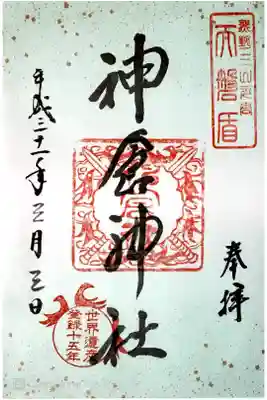 天磐盾
奉拝
神倉神社
世界遺産
登録十五年
平成三十一年三月三日